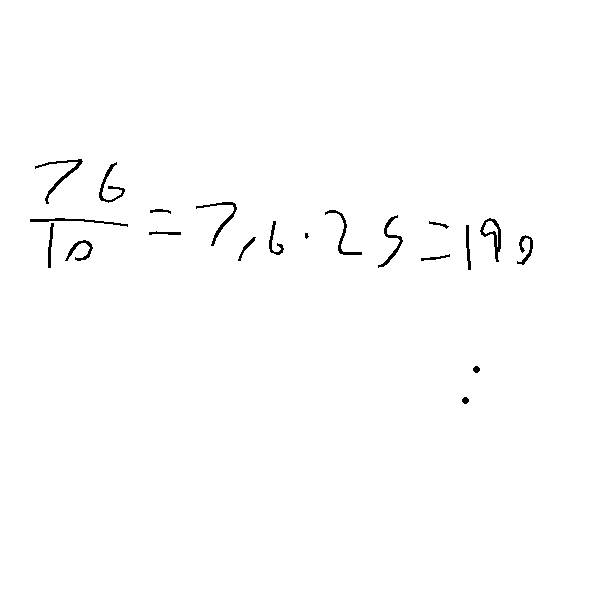 76/10 = 7,6 · 25 = 190
: